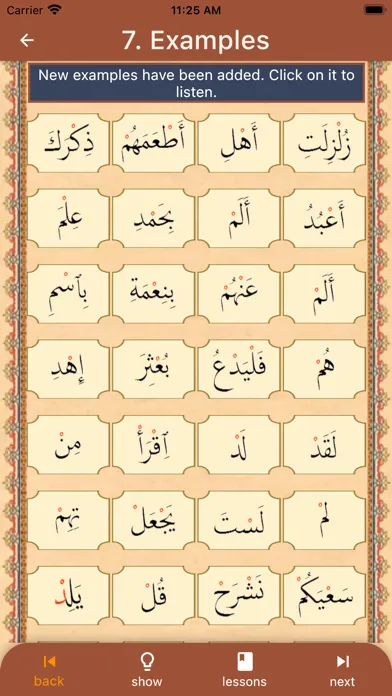 Carrier 11:25 AM
7. Examples
New examples have been added. Click on it to
listen.
زُلْزِلَتِ أَهْلِ أَطْعَمَهُمْ ذِكْرَكَ
أَعْبُدُ أَلَمْ بِحَمْدِ عِلْمَ
أَلَمْ عَنْهُمْ بِنِعْمَةِ بِٱسْمِ
هُمْ فَلْيَدْعُ بُعْثِرَ إِهْدِ
لَقَدْ لَدْ ٱِقْرَأْ مِنْ
لَمْ لَسْتَ يَجْعَلْ تِهِمْ
سَعْيَكُمْ نَشْرَحْ قُلْ يَلِدْ
back show lessons next